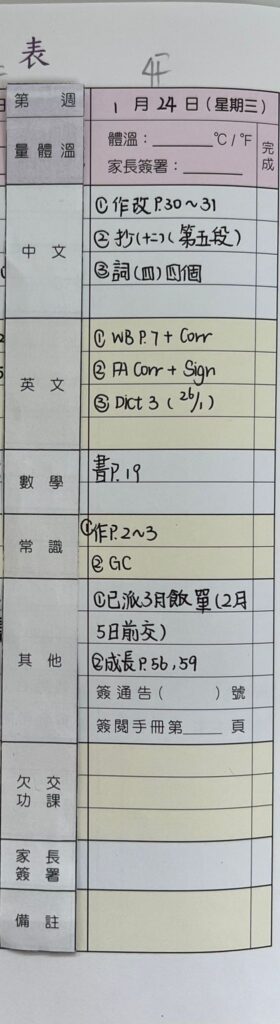 表
4F
第 週
1 月 24 日 (星期三)
量體溫
體溫：______°C / °F
家長簽署：______
完成
中文
① 作改 P.30～31
② 抄(十二)(第五段)
③ 詞(四)四個
英文
① WB P.7 + Corr
② FA Corr + Sign
③ Dict 3 (26/1)
數學
書P.19
常識
①作P.2~3
② GC
其他
①已派3月飯單(2月
5日前交)
②成長P.56,59
簽通告( )號
簽閱手冊第____頁
欠交功課
家長簽署
備註